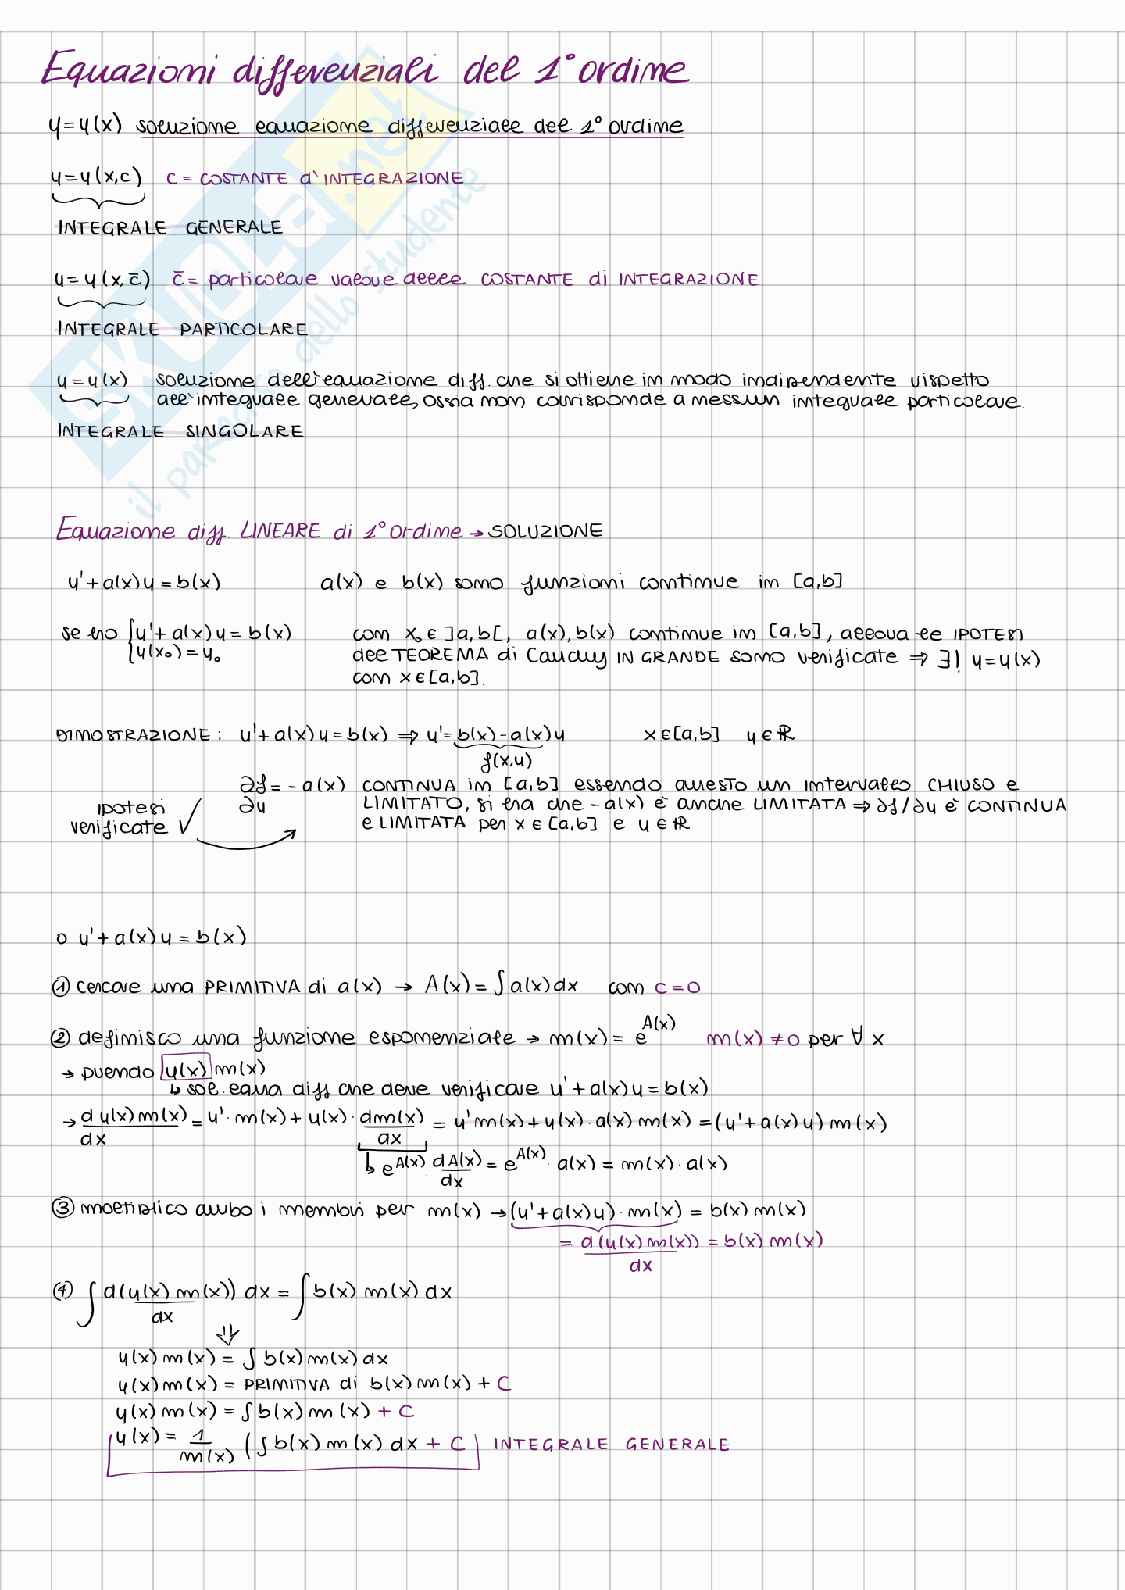 Equazioni differenziali del 1° ordine
y=y(x) soluzione equazione differenziale del 1° ordine
y=y(x,c) c = COSTANTE d'INTEGRAZIONE
INTEGRALE GENERALE
y=y(x,c̄) c̄= particolare valore della COSTANTE di INTEGRAZIONE
INTEGRALE PARTICOLARE
y=y(x) soluzione dell'equazione diff. che si ottiene in modo indipendente rispetto
all'integrale generale, ossia non corrisponde a nessun integrale particolare.
INTEGRALE SINGOLARE
SKUOLA.net
il paradiso dello studente
Equazione diff. LINEARE di 1° ordine → SOLUZIONE
y'+a(x)y=b(x) a(x) e b(x) sono funzioni continue in [a,b]
se ho {y'+a(x)y=b(x) con x₀∈]a,b[, a(x),b(x) continue in [a,b], allora le IPOTESI
{y(x₀)=y₀ del TEOREMA di Cauchy IN GRANDE sono verificate ⇒ ∃! y=y(x)
con x∈[a,b].
DIMOSTRAZIONE: y'+a(x)y=b(x) ⇒ y'=b(x)-a(x)y x∈[a,b] y∈ℝ
f(x,y)
∂f = -a(x) CONTINUA in [a,b] essendo questo un intervallo CHIUSO e
∂y LIMITATO, si ha che -a(x) è anche LIMITATA ⇒ ∂f/∂y è CONTINUA
e LIMITATA per x∈[a,b] e y∈ℝ
ipotesi
verificate ✓
o y'+a(x)y=b(x)
① cercare una PRIMITIVA di a(x) → A(x)=∫a(x)dx con c=0
② definisco una funzione esponenziale → m(x)= e^A(x) m(x)≠0 per ∀ x
→ prendo y(x) m(x)
↳ sol. equa diff che deve verificare y'+a(x)y=b(x)
→ d y(x)m(x)/dx = y'·m(x)+y(x)·dm(x)/dx = y'm(x)+y(x)·a(x)m(x)=(y'+a(x)y)m(x)
↳ e^A(x) dA(x)/dx = e^A(x)·a(x)=m(x)·a(x)
③ moltiplico ambo i membri per m(x) → (y'+a(x)y)·m(x)=b(x)m(x)
= d(y(x)m(x))/dx = b(x)m(x)
④ ∫d(y(x)m(x))/dx dx=∫b(x)m(x)dx
⇓
y(x)m(x)=∫b(x)m(x)dx
y(x)m(x)= PRIMITIVA di b(x)m(x)+C
y(x)m(x)=∫b(x)m(x)+C
y(x)=1/m(x) (∫b(x)m(x)dx+C) INTEGRALE GENERALE